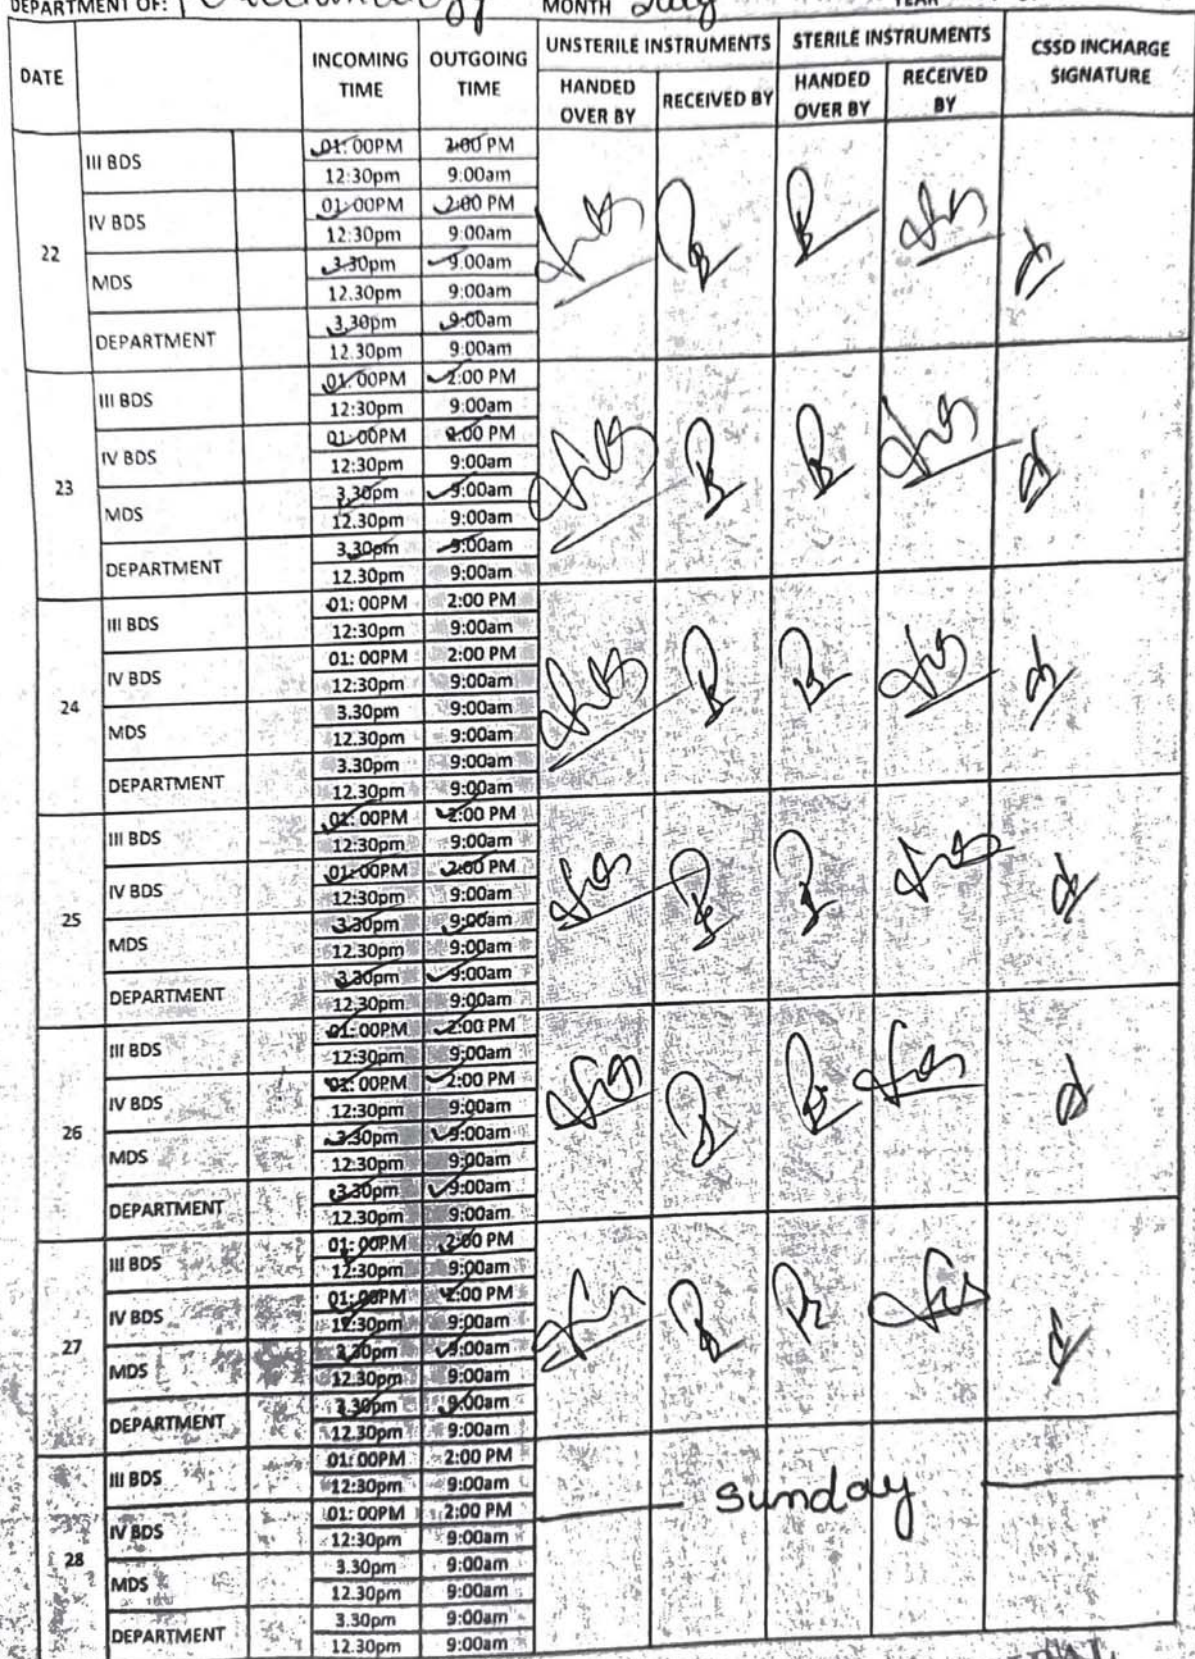 DEPARTMENT OF: MONTH July YEAR
DATE INCOMING TIME OUTGOING TIME UNSTERILE INSTRUMENTS STERILE INSTRUMENTS CSSD INCHARGE SIGNATURE
HANDED OVER BY RECEIVED BY HANDED OVER BY RECEIVED BY
22
III BDS 01:00PM 2:00 PM
12:30pm 9:00am
IV BDS 01:00PM 2:00 PM
12:30pm 9:00am
MDS 3.30pm 9.00am
12.30pm 9:00am
DEPARTMENT 3.30pm 9:00am
12.30pm 9:00am
23
III BDS 01:00PM 2:00 PM
12:30pm 9:00am
IV BDS 01:00PM 2:00 PM
12:30pm 9:00am
MDS 3.30pm 9:00am
12.30pm 9:00am
DEPARTMENT 3.30pm 9:00am
12.30pm 9:00am
24
III BDS 01:00PM 2:00 PM
12:30pm 9:00am
IV BDS 01:00PM 2:00 PM
12:30pm 9:00am
MDS 3.30pm 9:00am
12.30pm 9:00am
DEPARTMENT 3.30pm 9:00am
12.30pm 9:00am
25
III BDS 01:00PM 2:00 PM
12:30pm 9:00am
IV BDS 01:00PM 2:00 PM
12:30pm 9:00am
MDS 3.30pm 9:00am
12.30pm 9:00am
DEPARTMENT 3.30pm 9:00am
12.30pm 9:00am
26
III BDS 01:00PM 2:00 PM
12:30pm 9:00am
IV BDS 01:00PM 2:00 PM
12:30pm 9:00am
MDS 3.30pm 9:00am
12.30pm 9:00am
DEPARTMENT 3.30pm 9:00am
12.30pm 9:00am
27
III BDS 01:00PM 2:00 PM
12:30pm 9:00am
IV BDS 01:00PM 2:00 PM
12:30pm 9:00am
MDS 3.30pm 9:00am
12.30pm 9:00am
DEPARTMENT 3.30pm 9:00am
12.30pm 9:00am
28
III BDS 01:00PM 2:00 PM
12:30pm 9:00am Sunday
IV BDS 01:00PM 2:00 PM
12:30pm 9:00am
MDS 3.30pm 9:00am
12.30pm 9:00am
DEPARTMENT 3.30pm 9:00am
12.30pm 9:00am